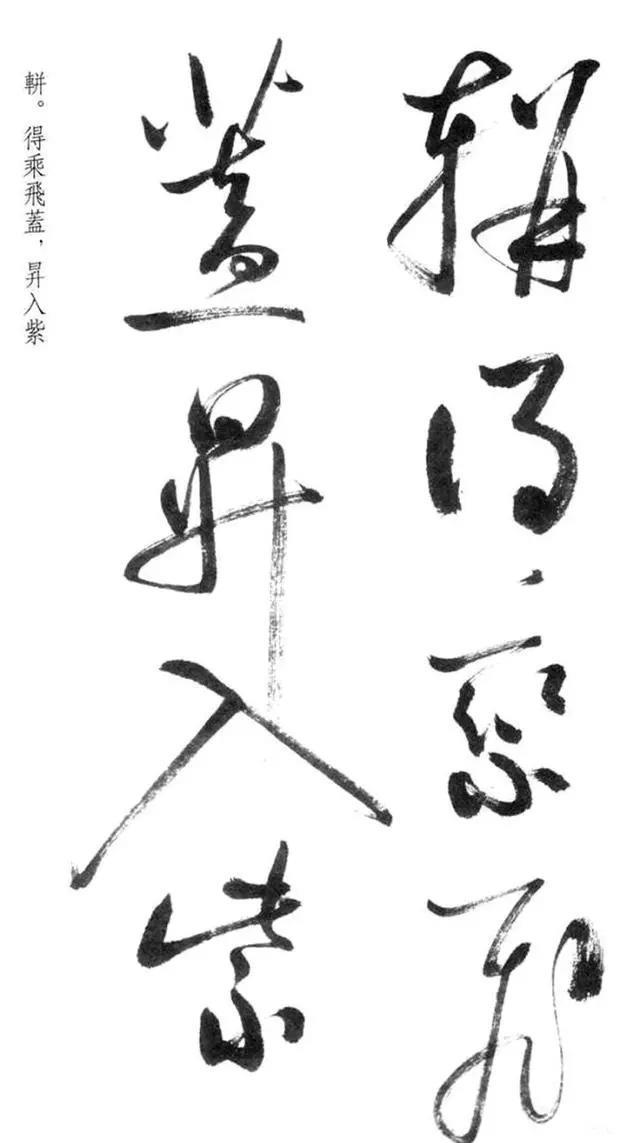 軿得乘飛
蓋昇入紫
軿。得乘飛蓋，昇入紫